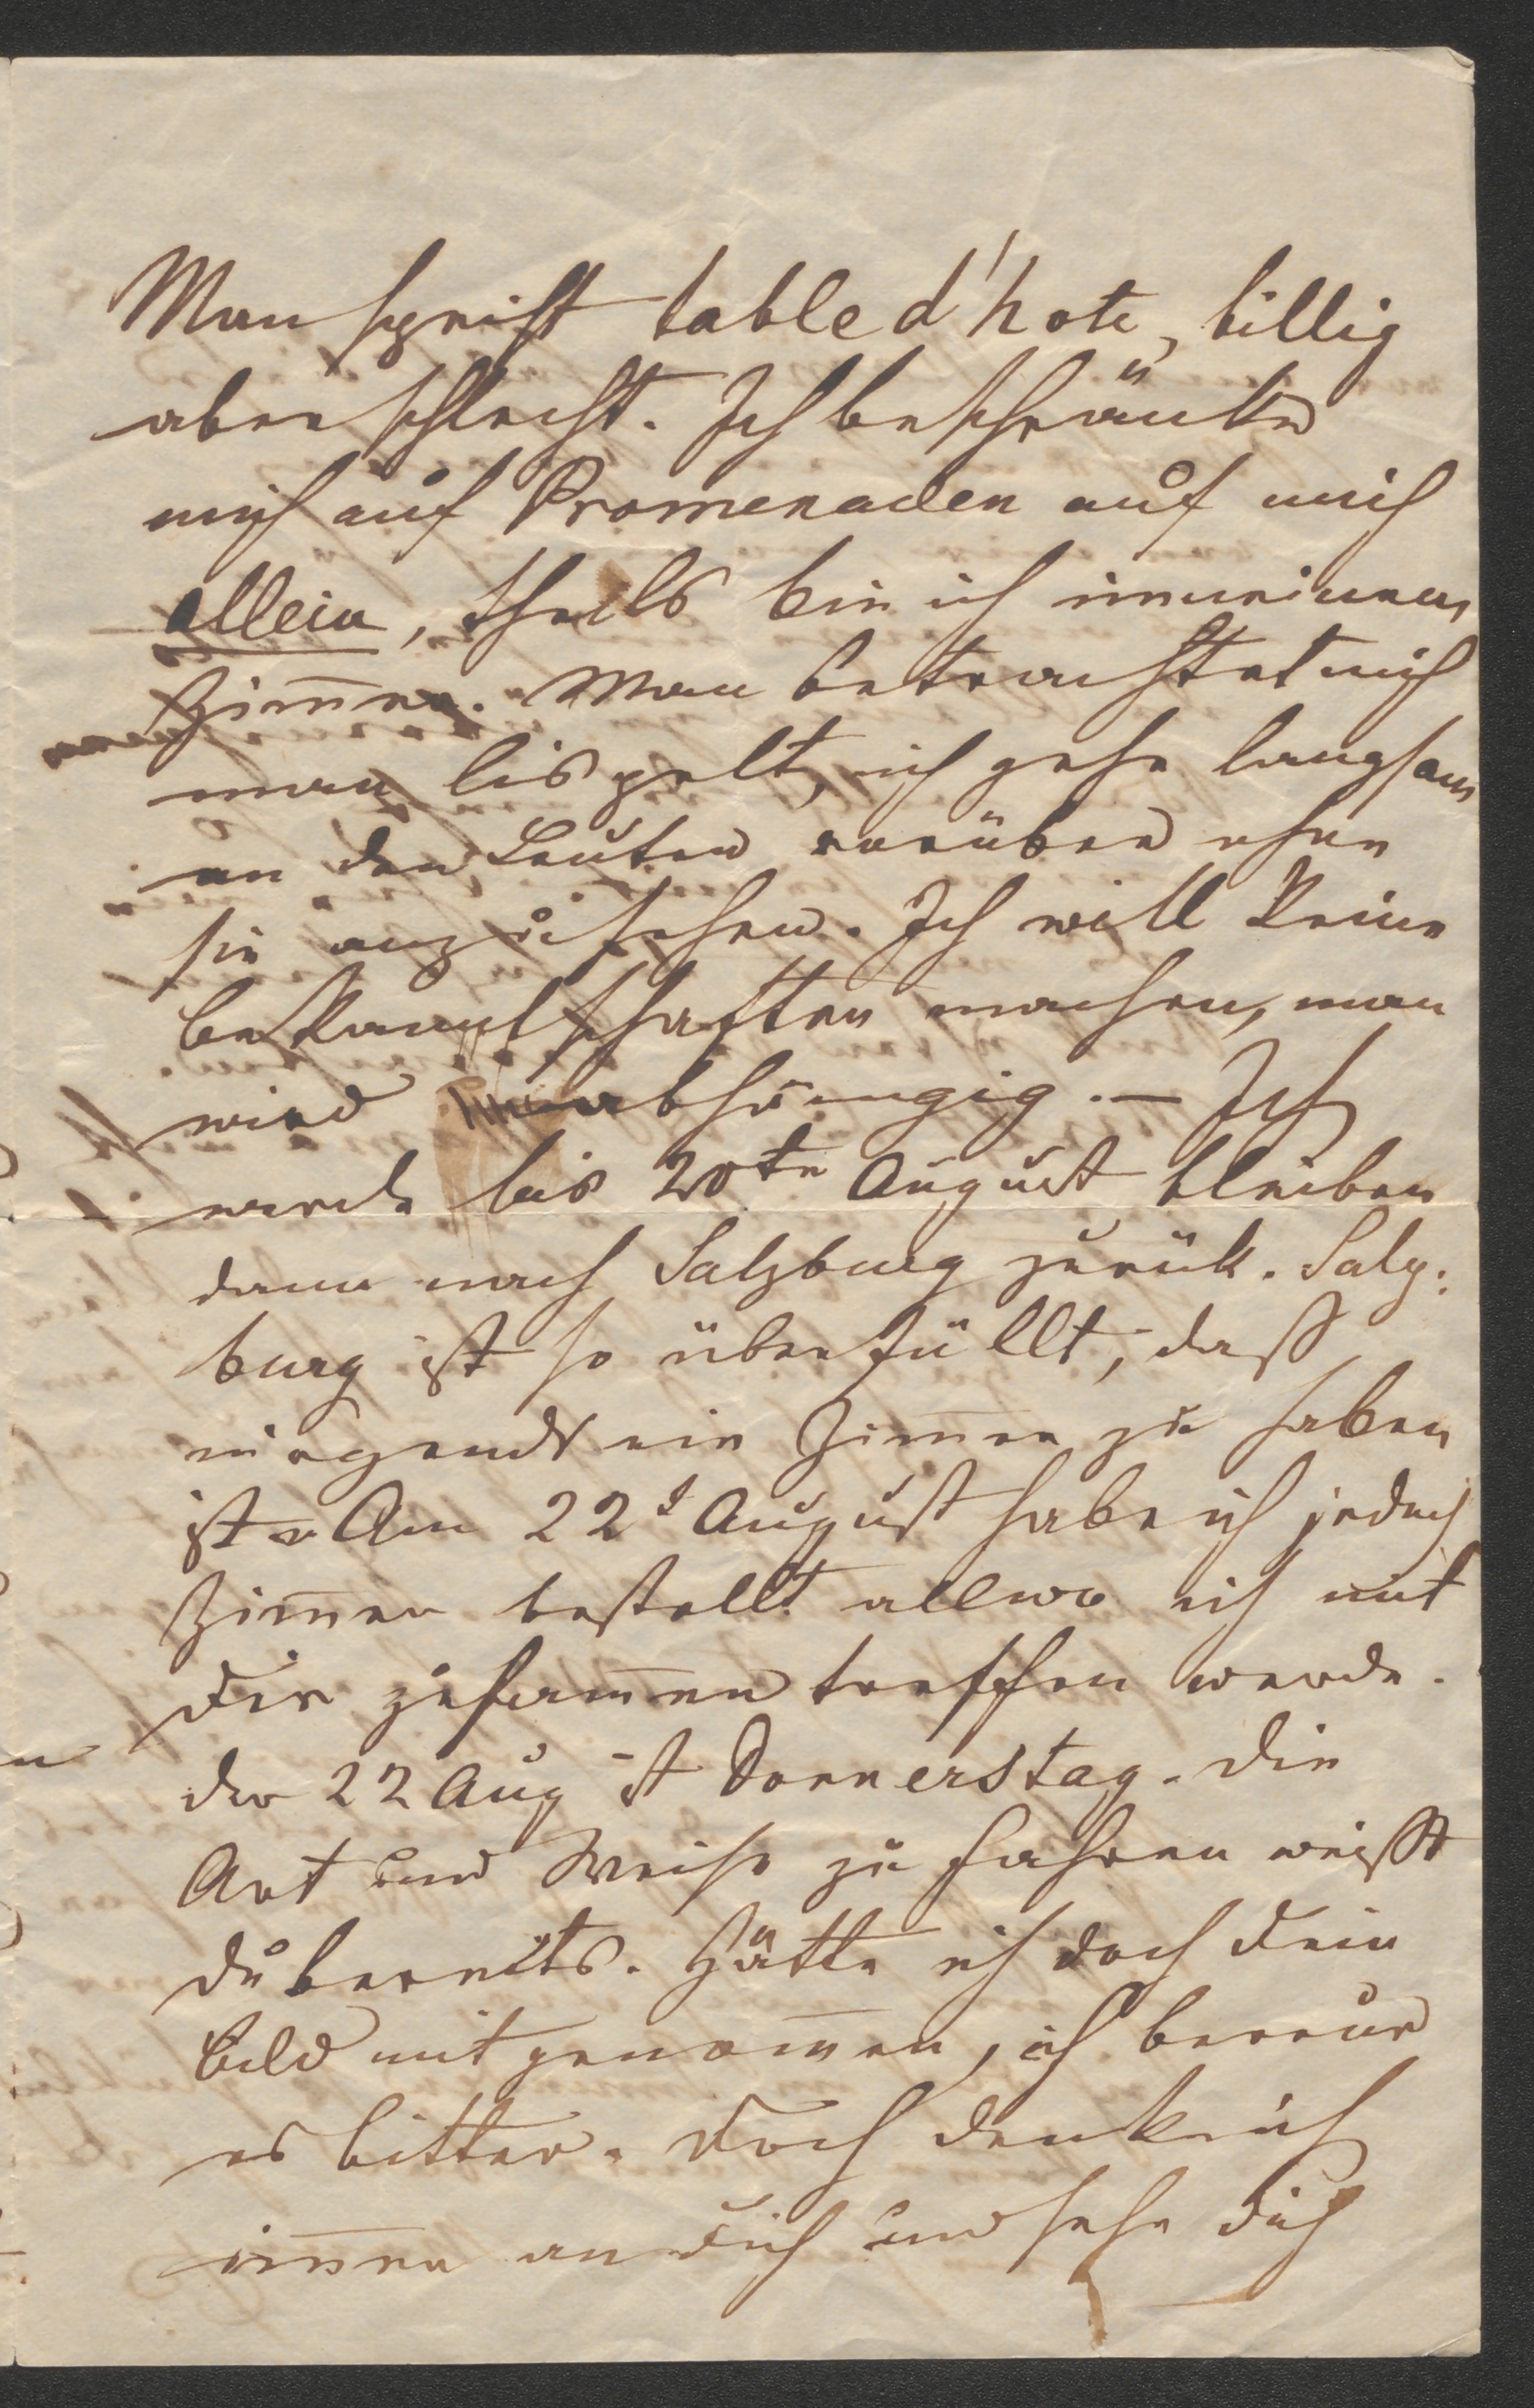 Man speist table d'hote, billig
aber schlecht. Ich beschränke
mich auf Promenaden auf mich
allein, theils bin ich immeinem
Zim̅er. Man betrachtet mich
man lispelt, ich gehe langsam
an den Leuten vorüber ohne
sie anzusehen. Ich will keine
Bekanntschaften machen, man
wird abhängig. — Ich
werde bis 20te August bleiben
dann nach Salzburg zurück. Salz:
burg ist so überfüllt, daß
nirgends ein Zim̅er zu haben
ist. Am 22t August habe ich jedoch
Zim̅er bestellt allwo ich mit
Dir zusam̅en treffen werde.
der 22 Aug ist Donnerstag. Die
Art und Weise zu fahren weißt
du bereits. Hätte ich doch Dein
Bild mit genom̅en, ich bereue
es bitter. Doch denk ich
im̅er an Dich und sehe Dich